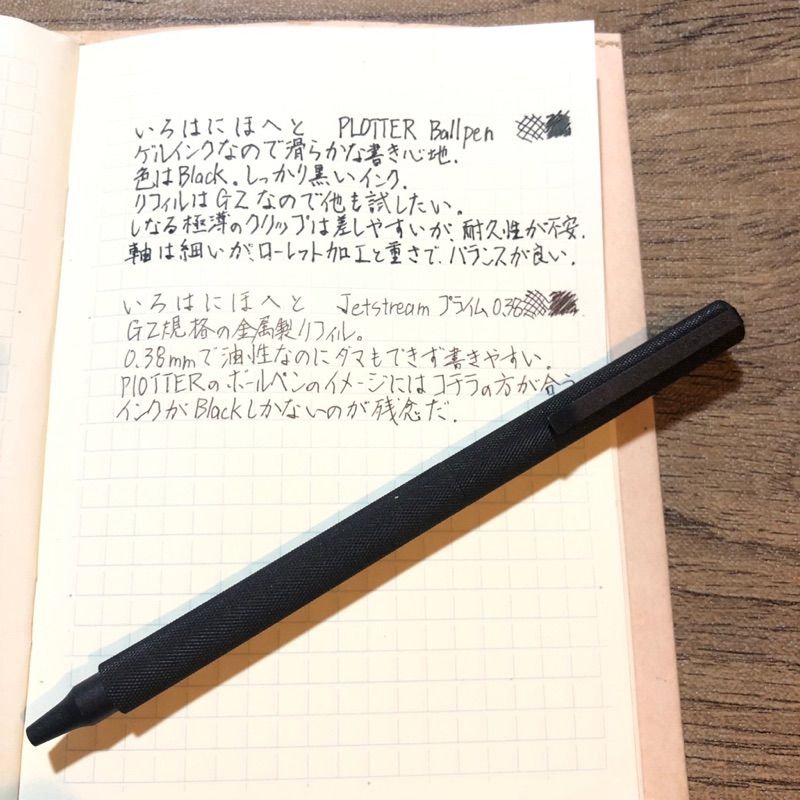 いろはにほへと PLOTTER Ballpen
ゲルインクなので滑らかな書き心地.
色はBlack.しっかり黒いインク.
リフィルはG2なので他も試したい.
しなる極薄のクリップは差しやすいが、耐久性が不安.
軸は細いが、ローレット加工と重さで、バランスが良い.
いろはにほへと Jetstream プライム 0.38
G2規格の金属製リフィル。
0.38mmで油性なのにダマもできず書きやすい.
PlOTTERのボールペンのイメージにはコチラの方が合う
インクがBlackしかないのが残念だ.